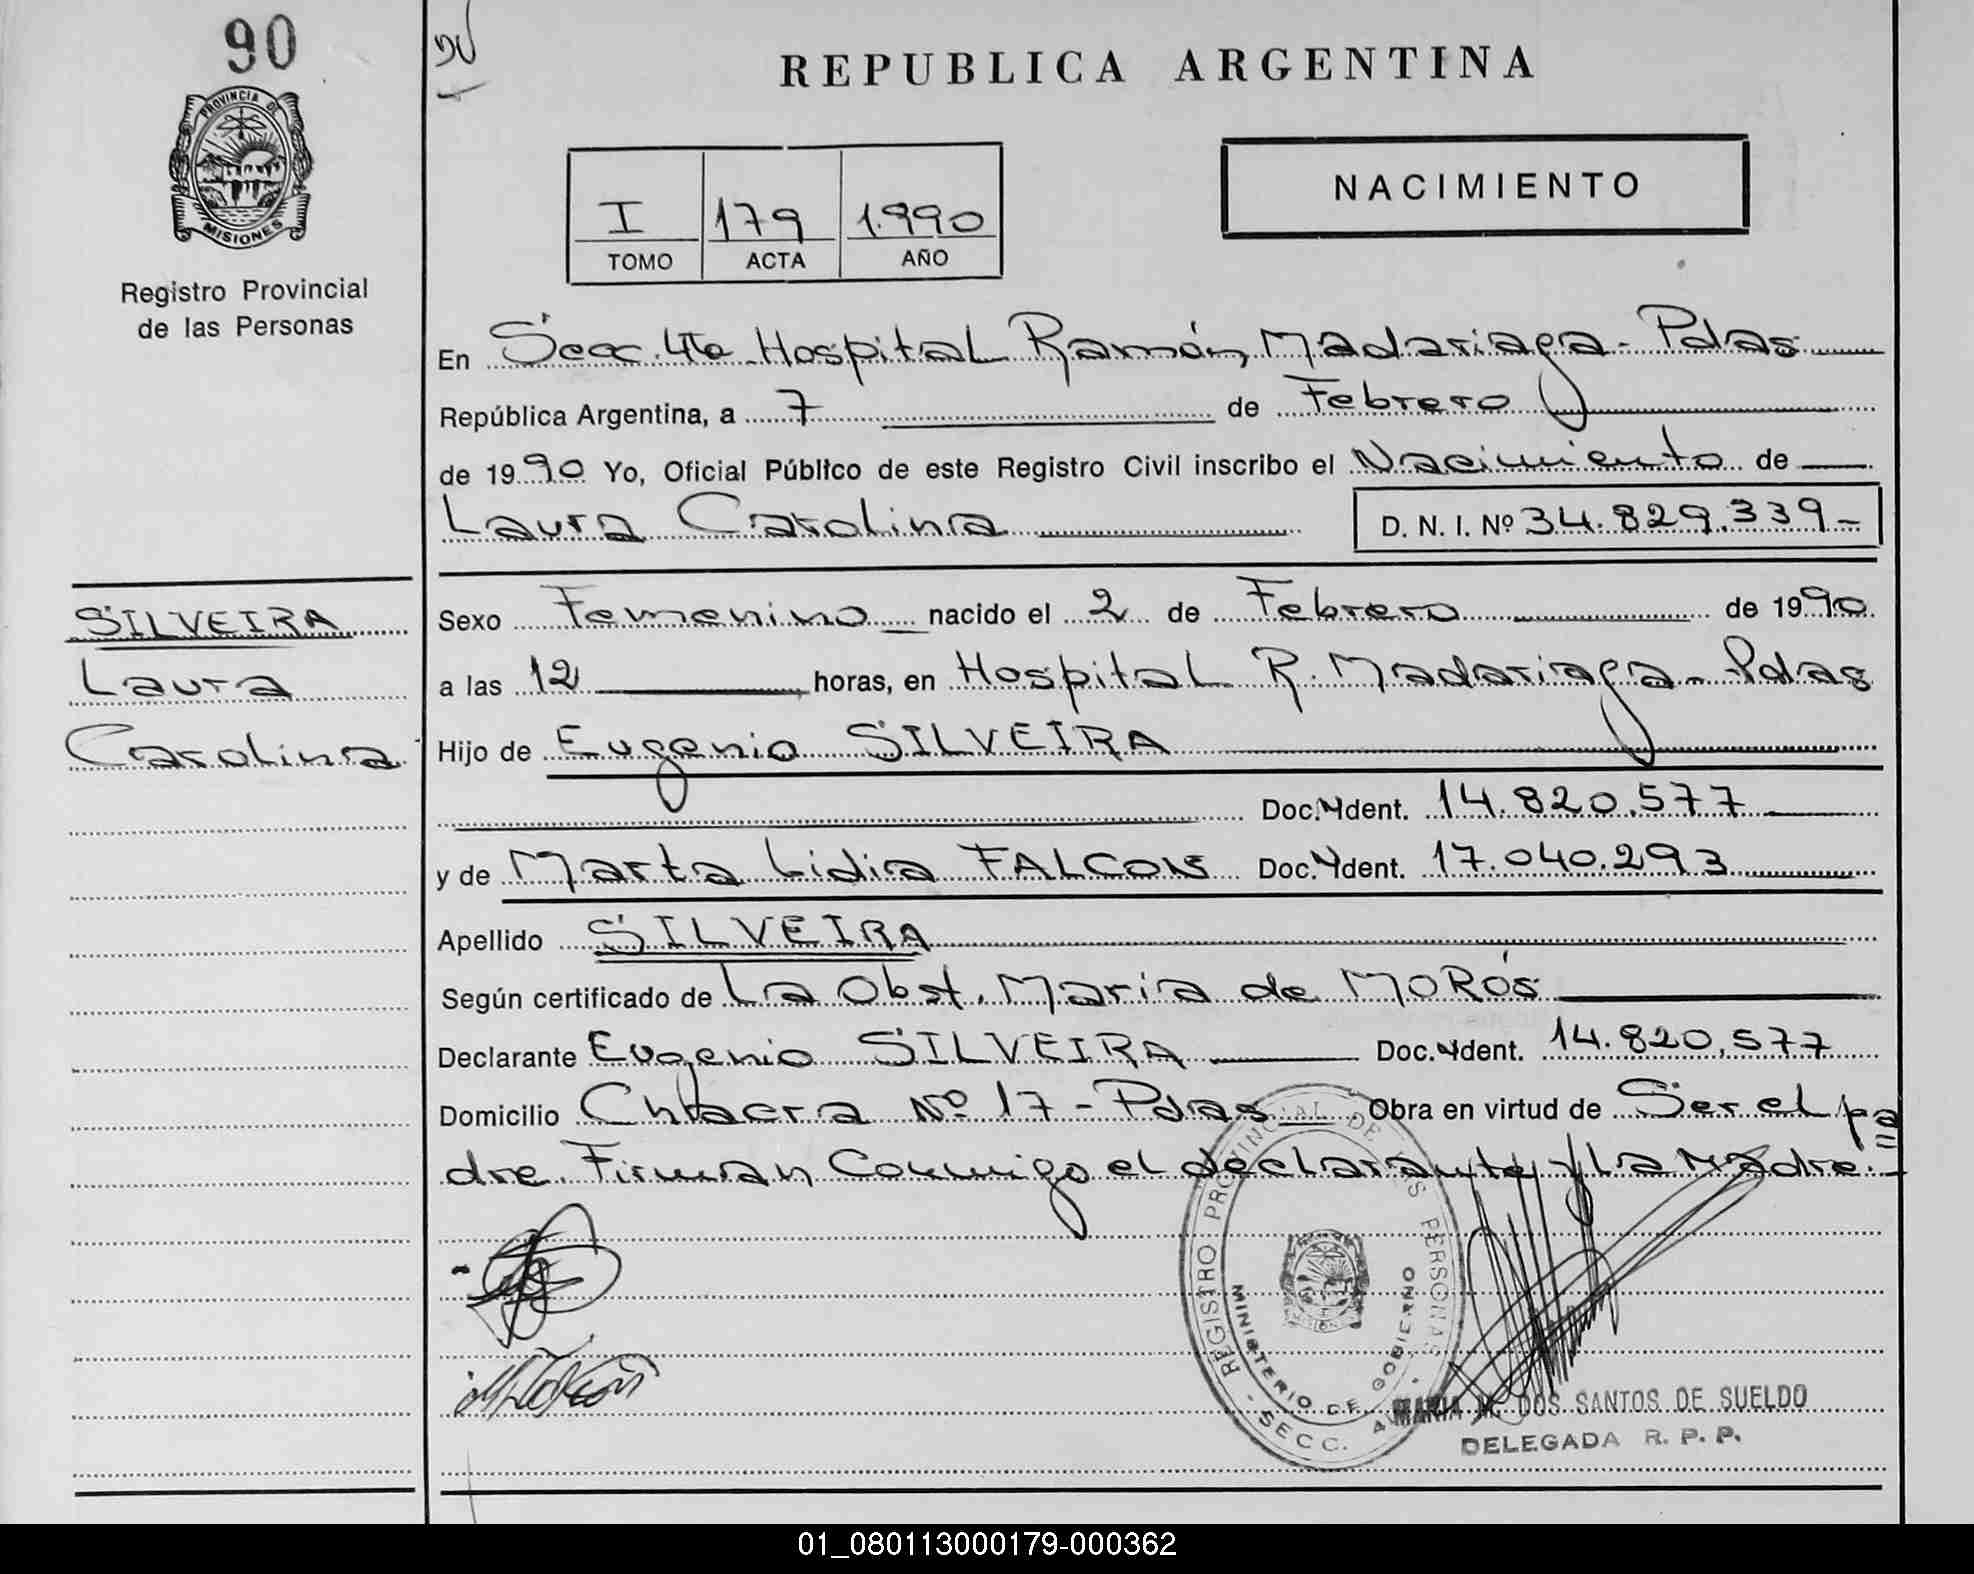 90
90
REPUBLICA ARGENTINA
PROVINCIA DE
MISIONES
Registro Provincial
de las Personas
I 179 1.990
TOMO ACTA AÑO
NACIMIENTO
En Secc. 4ta Hospital Ramón Madariaga - Pdas
República Argentina, a 7 de Febrero
de 1990 Yo, Oficial Público de este Registro Civil inscribo el Nacimiento de
Laura Carolina D. N. I. Nº 34.829.339-
SILVEIRA
Laura
Carolina
Sexo Femenino nacido el 2 de Febrero de 1990
a las 12 horas, en Hospital R. Madariaga - Pdas
Hijo de Eugenio SILVEIRA
Doc. Ident. 14.820.577
y de Marta Lidia FALCON Doc. Ident. 17.040.293
Apellido SILVEIRA
Según certificado de La Obst. Maria de MORÓS
Declarante Eugenio SILVEIRA Doc. Ident. 14.820.577
Domicilio Chacra Nº 17 - Pdas Obra en virtud de Ser el pa
dre. Firman Conmigo el declarante y La Madre.-
REGISTRO PROVINCIAL DE LAS PERSONAS
MINISTERIO DE GOBIERNO
- SECC. 4
MARIA M. DOS SANTOS DE SUELDO
DELEGADA R. P. P.
01_080113000179-000362